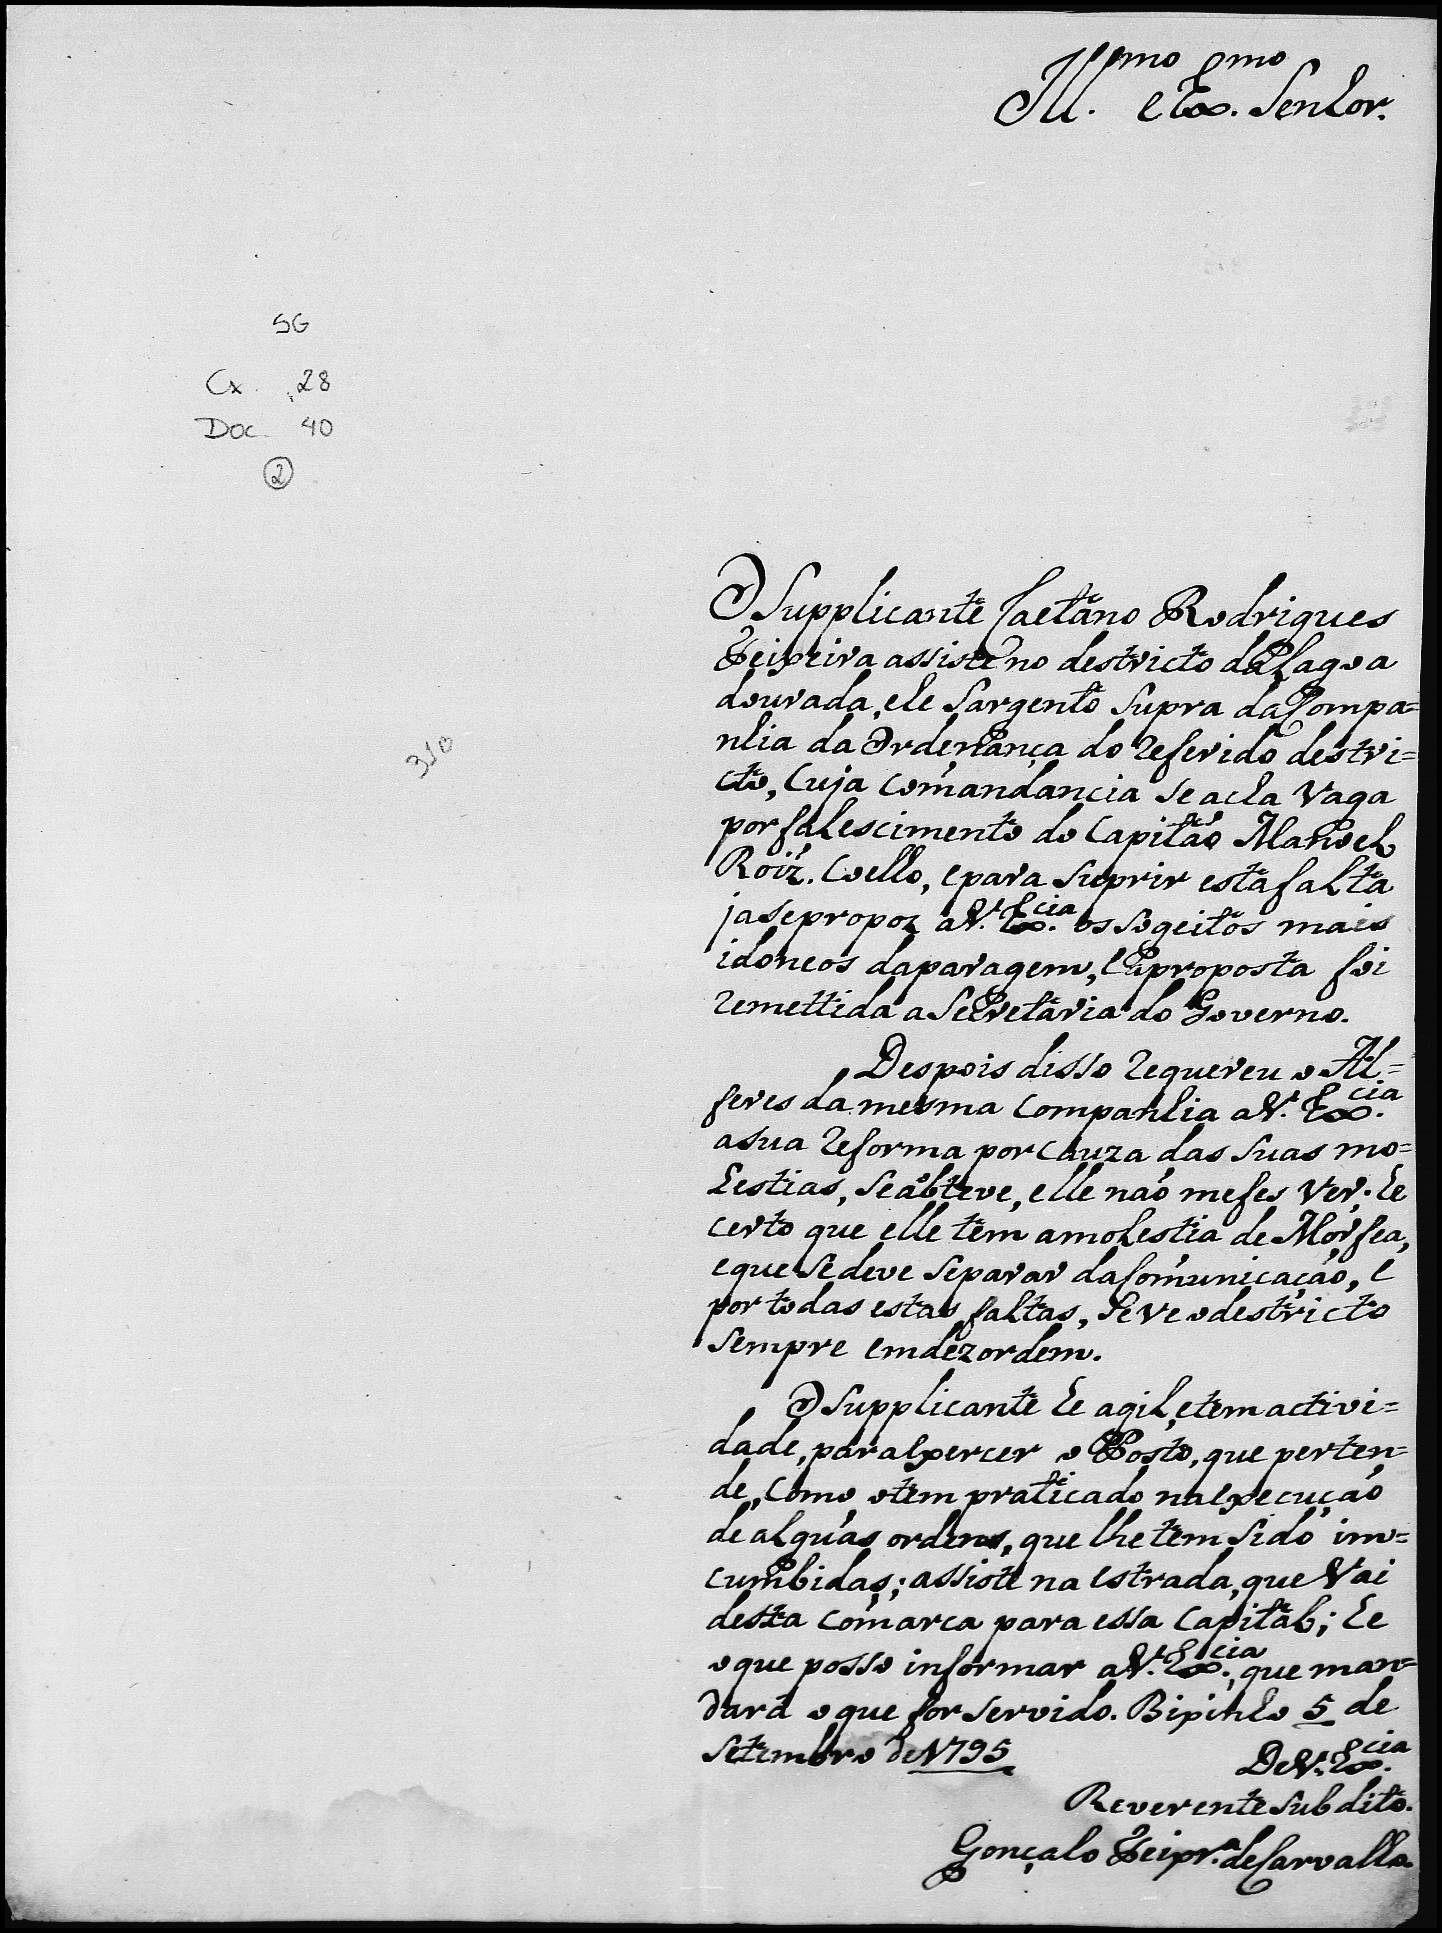 Ill.mo e Ex.mo Senhor.
SG
Cx. 28
Doc. 40
2
310
O Supplicante Caetano Rodrigues
Teixeira assiste no destricto da Lagoa
dourada, e he Sargento Supra da Compa=
nhia da Ordenança do referido destri=
cto, cuja comandancia se acha vaga
por falescimento do Capitão Manoel
Roiz. Coelho, e para suprir esta falta
ja se propoz a V. Ex.cia os sogeitos mais
idoneos da paragem, e a proposta foi
remettida a Secretaria do Governo.
Despois disso requereu o Al=
feres da mesma Companhia a V. Ex.cia
a sua reforma por cauza das suas mo=
lestias, se a obteve, elle não me fes ver. he
certo que elle tem a molestia de Morfea,
e que se deve separar da Comunicação, e
por todas estas faltas, se ve o destricto
sempre em dezordem.
O Supplicante he agil, e tem activi=
dade, para exercer o Posto, que perten=
de, como o tem praticado na execução
de alguãs ordens, que lhe tem sido im=
cumbidas; assiste na estrada, que vai
desta comarca para essa Capital; he
o que posso informar a V. Ex.cia, que man=
dará o que for servido. Bixinho 5 de
Setembro de 1795
De V. Ex.cia
Reverente Subdito.
Gonçalo Teixr.a de Carvalho